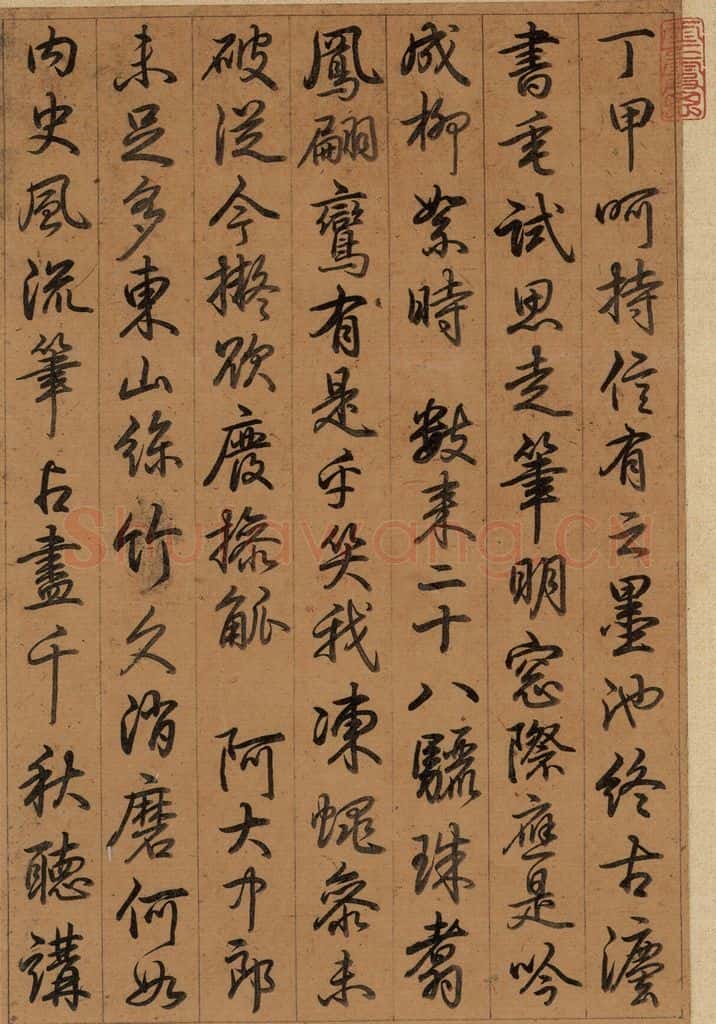 丁甲呵持信有之墨池終古
書垂試思走筆明窓際應是吟
成柳絮時 數來二十八驪珠翥
鳳翩鸞有是乎笑我凍蠅參未
破從今擬欲廢操觚 阿大中郎
未足多東山絲竹久消磨何如
內史風流筆占盡千秋聽講
Shufawang.CN